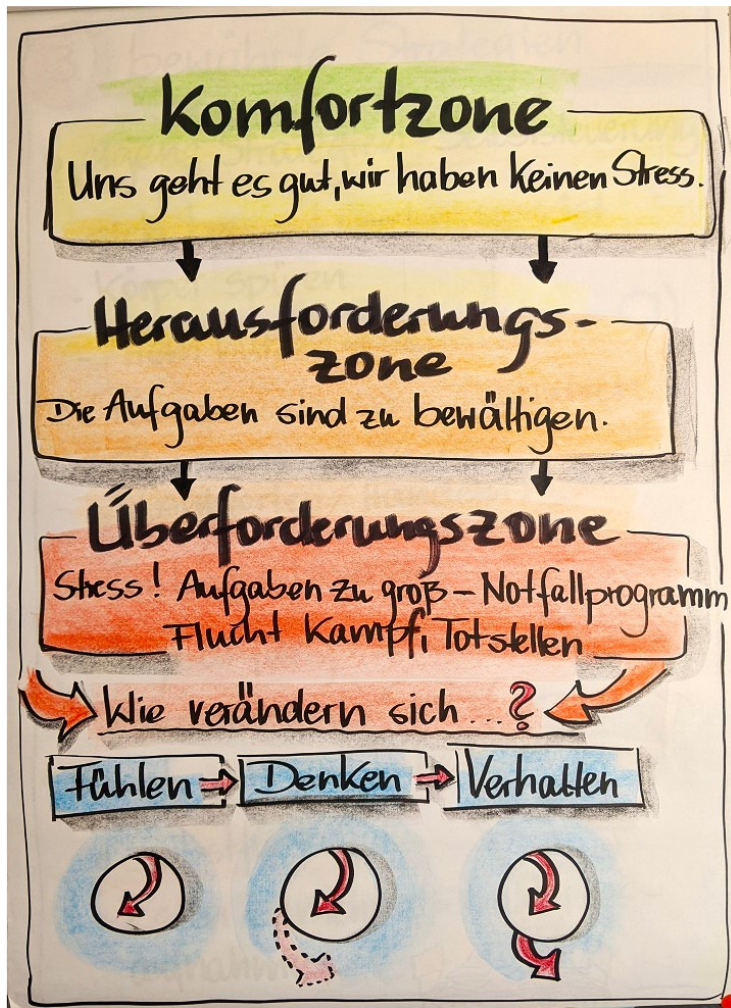 Komfortzone
Uns geht es gut, wir haben keinen Stress.
Herausforderungs-
zone
Die Aufgaben sind zu bewältigen.
Überforderungszone
Stress! Aufgaben zu groß – Notfallprogramm
Flucht Kampf, Totstellen
Wie verändern sich...?
Fühlen Denken Verhalten